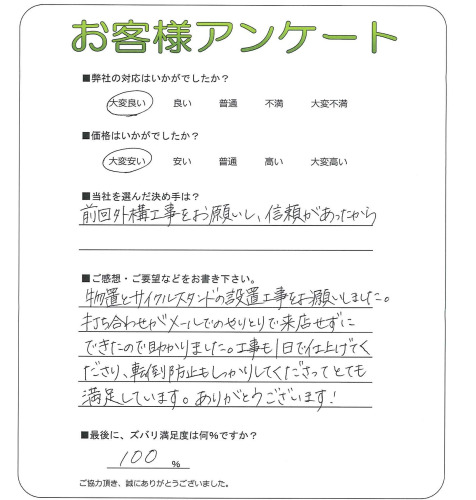 お客様アンケート
■弊社の対応はいかがでしたか？
大変良い 良い 普通 不満 大変不満
■価格はいかがでしたか？
大変安い 安い 普通 高い 大変高い
■当社を選んだ決め手は？
前回外構工事をお願いし、信頼があったから
■ご感想・ご要望などをお書き下さい。
物置とサイクルスタンドの設置工事をお願いしました。
打ち合わせがメールでのやりとりで来店せずに
できたので助かりました。工事も1日で仕上げてく
ださり、転倒防止もしっかりしてくださってとても
満足しています。ありがとうございます！
■最後に、ズバリ満足度は何%ですか？
100 %
ご協力頂き、誠にありがとうございました。